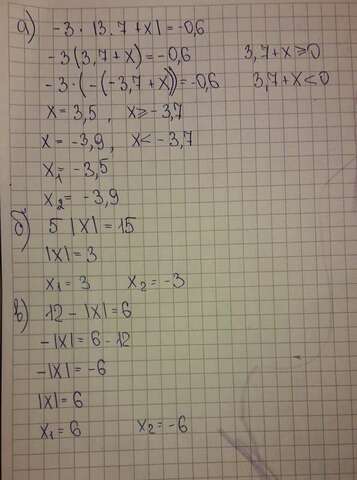 а) -3 · |3.7 + x| = -0,6
-3(3,7+x) = -0,6 3,7+x ≥ 0
-3·(-(-3,7+x)) = -0,6 3,7+x < 0
x = 3,5 , x ≥ -3,7
x = -3,9 , x < -3,7
x₁ = -3,5
x₂ = -3,9
б) 5 |x| = 15
|x| = 3
x₁ = 3 x₂ = -3
в) 12 - |x| = 6
-|x| = 6 - 12
-|x| = -6
|x| = 6
x₁ = 6 x₂ = -6